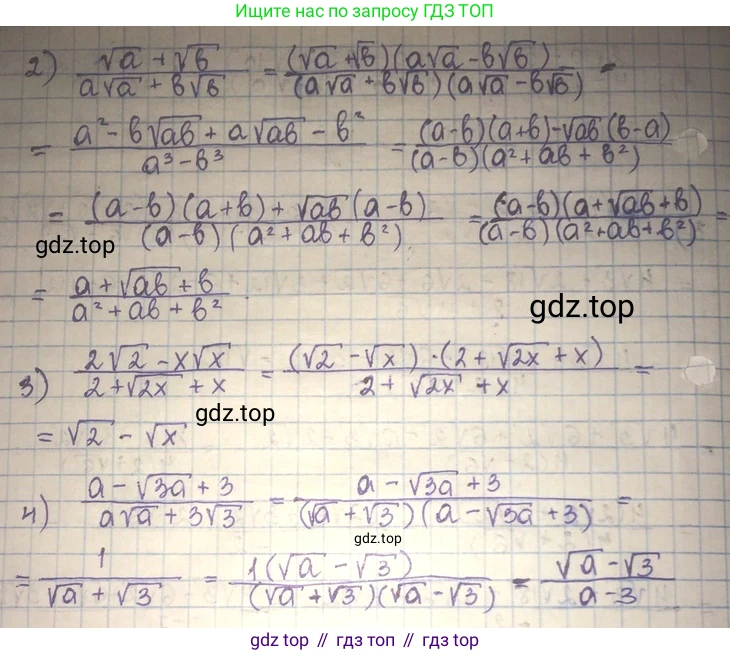 Ищите нас по запросу ГДЗ ТОП
2) (√a + √b)/(a√a + b√b) = ((√a + √b)(a√a - b√b))/((a√a + b√b)(a√a - b√b)) =
= (a² - b√ab + a√ab - b²)/(a³ - b³) = ((a-b)(a+b) - √ab(b-a))/((a-b)(a² + ab + b²))
= ((a-b)(a+b) + √ab(a-b))/((a-b)(a² + ab + b²)) = ((a-b)(a + √ab + b))/((a-b)(a² + ab + b²)) =
gdz.top
= (a + √ab + b)/(a² + ab + b²)
gdz.top
3) (2√2 - x√x)/(2 + √2x + x) = ((√2 - √x) · (2 + √2x + x))/(2 + √2x + x) =
gdz.top
= √2 - √x
4) (a - √3a + 3)/(a√a + 3√3) = (a - √3a + 3)/((√a + √3)(a - √3a + 3)) =
gdz.top
= 1/(√a + √3) = (1(√a - √3))/((√a + √3)(√a - √3)) = (√a - √3)/(a - 3)
gdz top // гдз топ // gdz.top